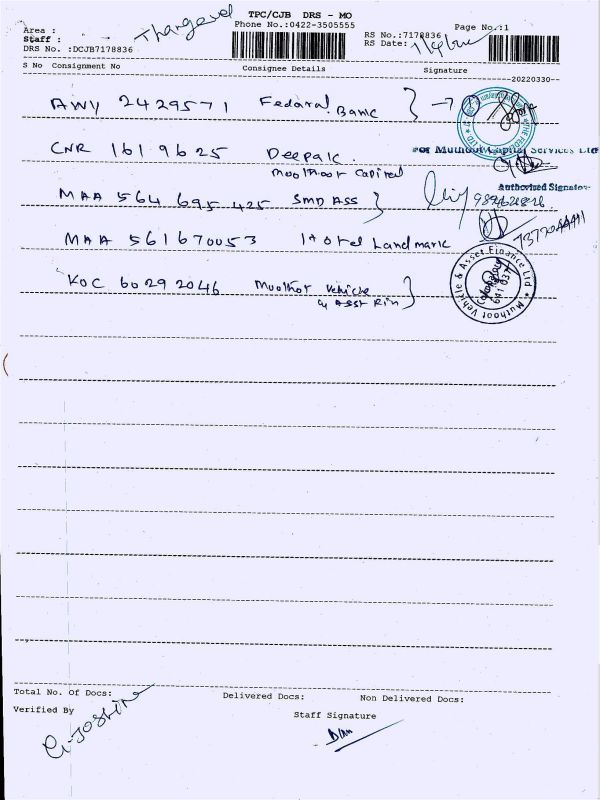 TPC/CJB DRS - MO
Thangavel
Area :
Phone No.:0422-3505555
Page No.:1
Staff :
RS No.:7178836
DRS No. :DCJB7178836
RS Date:
S No Consignment No Consignee Details Signature
20220330
AWY 2429571 Federal Bank
CNR 1619625 Deepak.
Moothoot Capital
For Muthoot Capital Services Ltd
Authorized Signator
MAA 564 695 425 SMD ASS
MAA 561670053 Hotel Landmark
KOC 60292046 Muothot Vehicle
& Asst Fin
Muthoot Vehicle & Asset Finance Ltd
Total No. Of Docs: Delivered Docs: Non Delivered Docs:
Verified By
Staff Signature